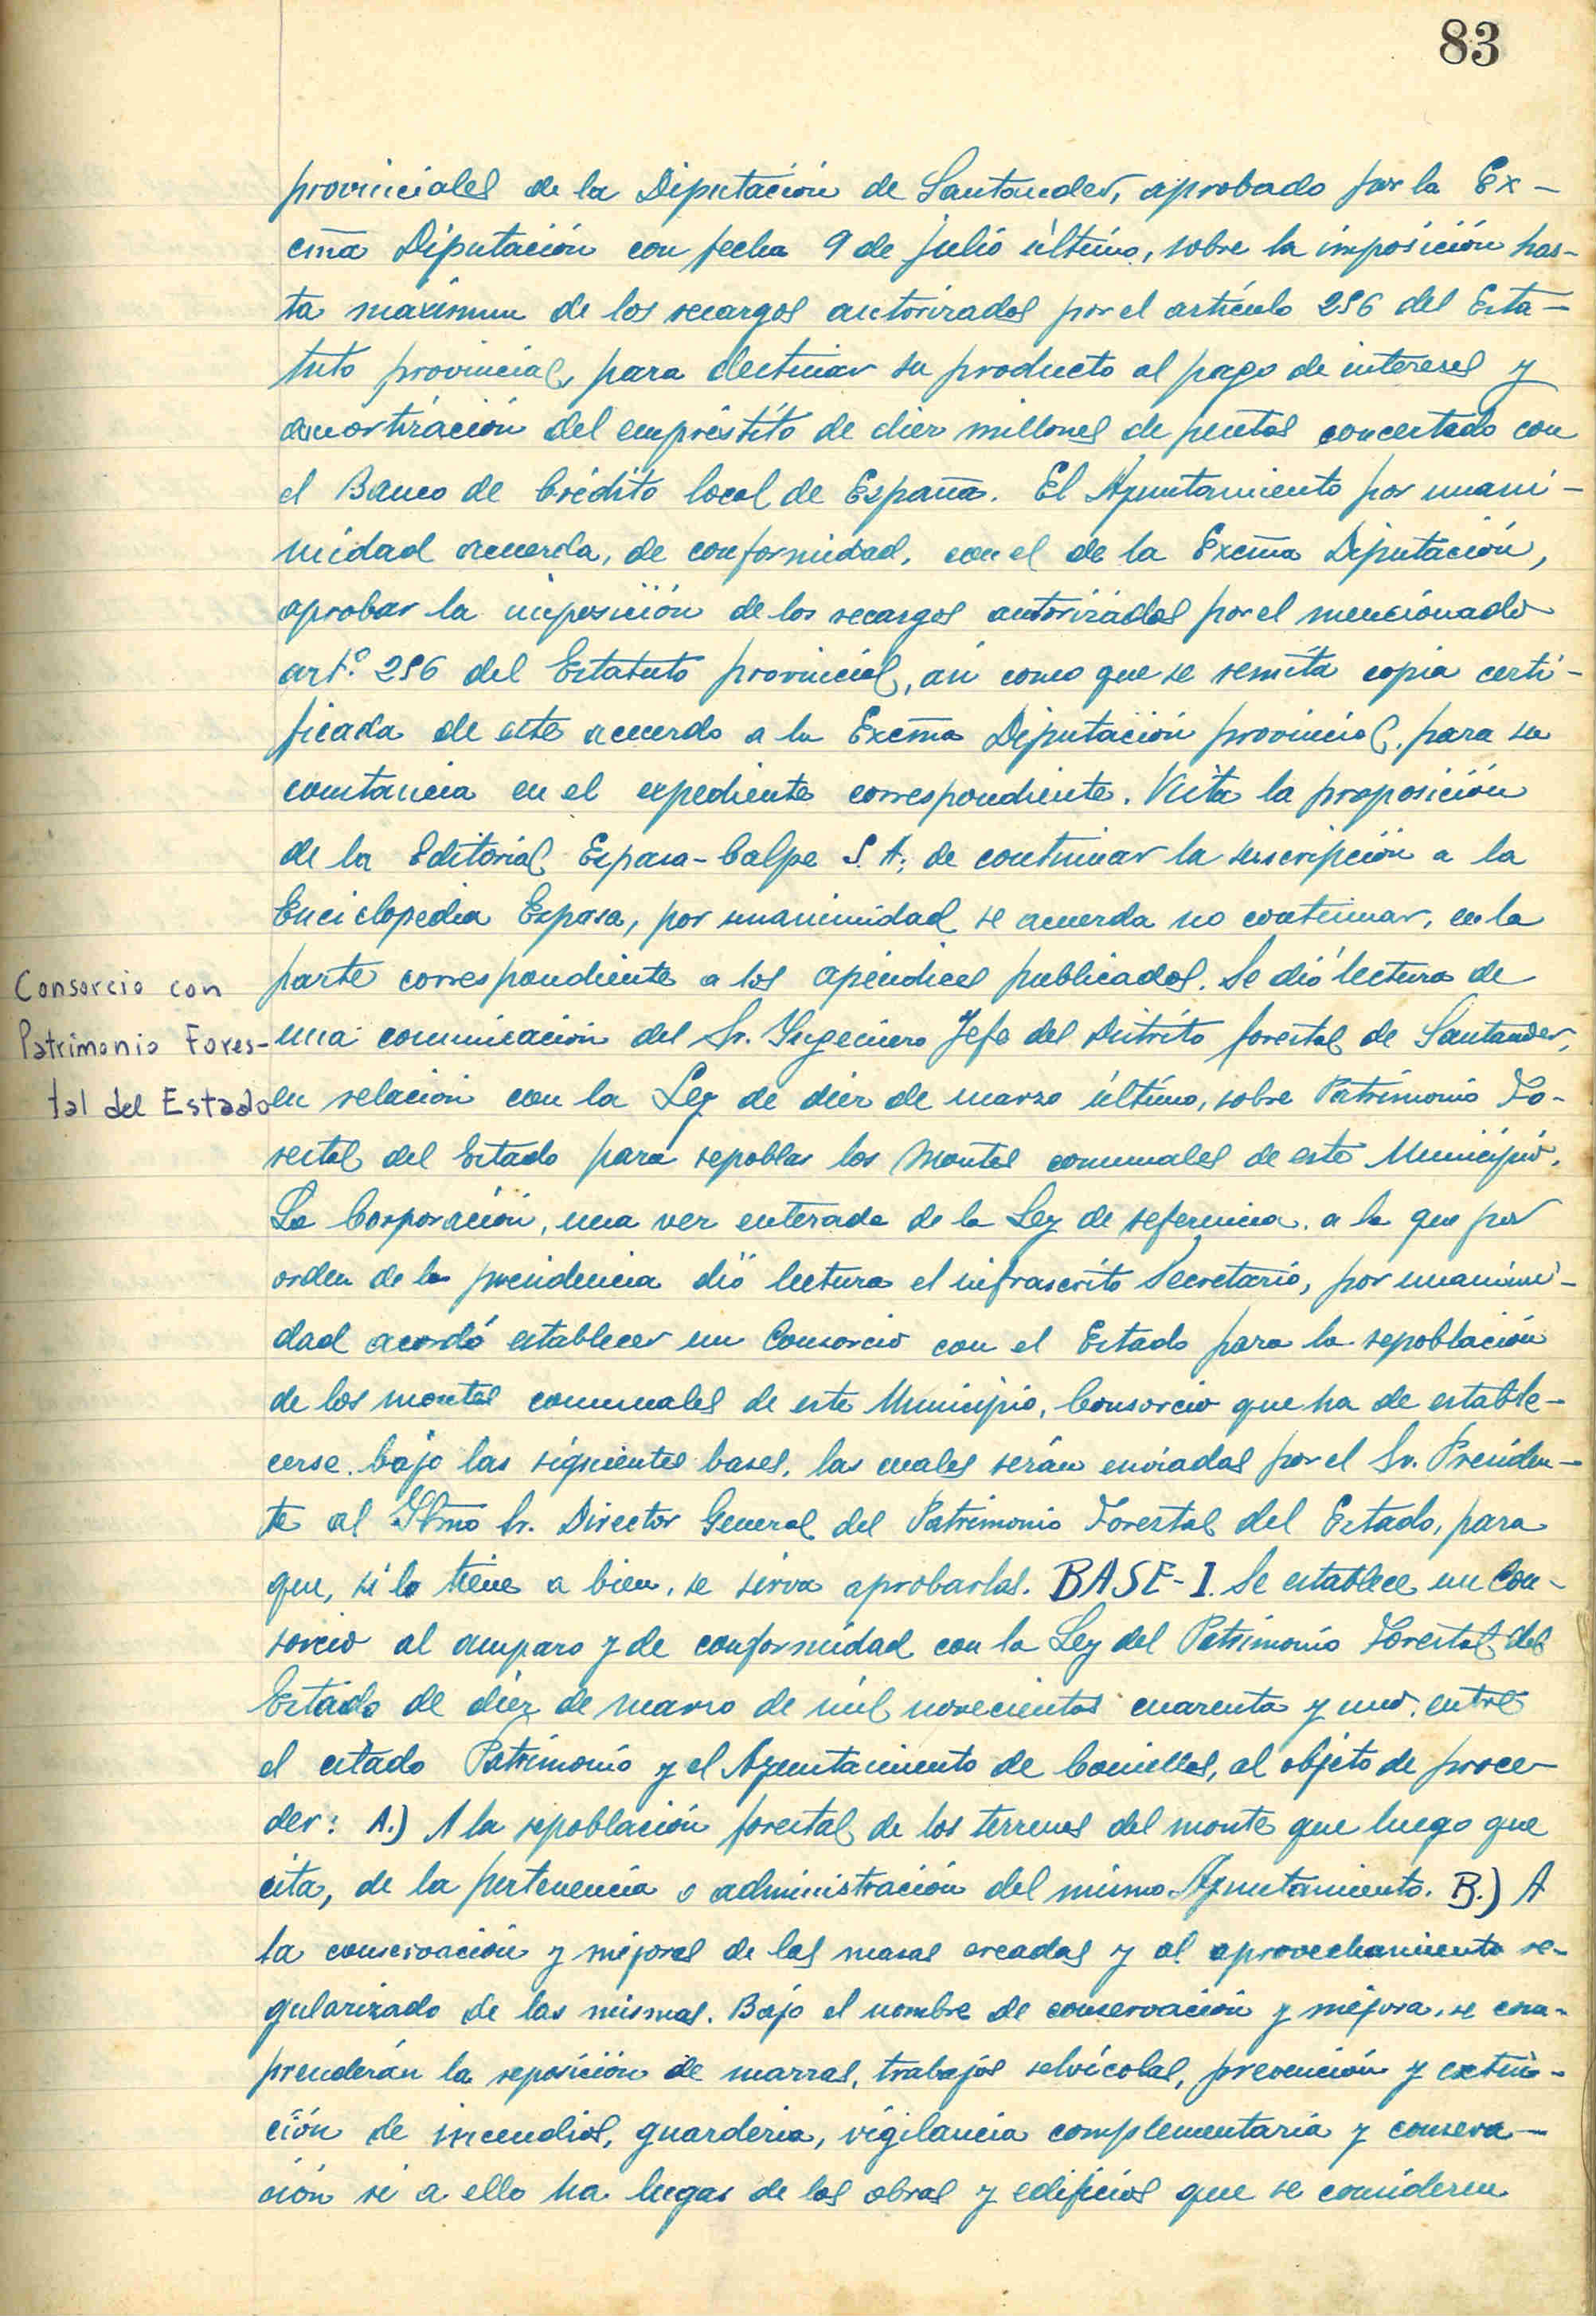 83
provinciales de la Diputación de Santander, aprobado por la Ex-
cma Diputación con fecha 9 de julio último, sobre la imposición has-
ta maximun de los recargos autorizados por el artículo 256 del Esta-
tuto provincial, para destinar su producto al pago de intereses y
amortización del empréstito de diez millones de pesetas concertado con
el Banco de Crédito local de España. El Ayuntamiento por unani-
midad acuerda, de conformidad, con el de la Excma Diputación,
aprobar la imposición de los recargos autorizados por el mencionado
artº. 256 del Estatuto provincial, así como que se remita copia certi-
ficada de este acuerdo a la Excma Diputación provincial, para su
constancia en el expediente correspondiente. Vista la proposición
de la Editorial Espasa-Calpe S. A; de continuar la suscripción a la
Enciclopedia Espasa, por unanimidad se acuerda no continuar, en la
parte correspondiente a los apéndices publicados. Se dió lectura de
Consorcio con
Patrimonio Fores-
tal del Estado
una comunicación del Sr. Ingeniero Jefe del Distrito forestal de Santander,
en relación con la Ley de diez de marzo último, sobre Patrimonio Fo-
restal del Estado para repoblar los Montes comunales de este Municipio.
La Corporación, una vez enterada de la Ley de referencia, a la que por
orden de la presidencia dió lectura el infrascrito Secretario, por unanimi-
dad acordó establecer un Consorcio con el Estado para la repoblación
de los montes comunales de este Municipio, Consorcio que ha de estable-
cerse bajo las siguientes bases, las cuales serán enviadas por el Sr. Presiden-
te al Iltmo Sr. Director General del Patrimonio Forestal del Estado, para
que, si lo tiene a bien, se sirva aprobarlas. BASE-I. Se establece un Con-
sorcio al amparo y de conformidad con la Ley del Patrimonio Forestal del
Estado de diez de marzo de mil novecientos cuarenta y uno, entre
el citado Patrimonio y el Ayuntamiento de Comillas, al objeto de proce-
der: A.) A la repoblación forestal de los terrenos del monte que luego que
cita, de la pertenencia o administración del mismo Ayuntamiento. B.) A
la conservación y mejoras de las masas creadas y al aprovechamiento re-
gularizado de las mismas. Bajo el nombre de conservación y mejora, se com-
prenderán la reposición de marras, trabajos selvícolas, prevención y extin-
ción de incendios, guarderia, vigilancia complementaria y conserva-
ción si a ello ha lugar de las obras y edificios que se consideren